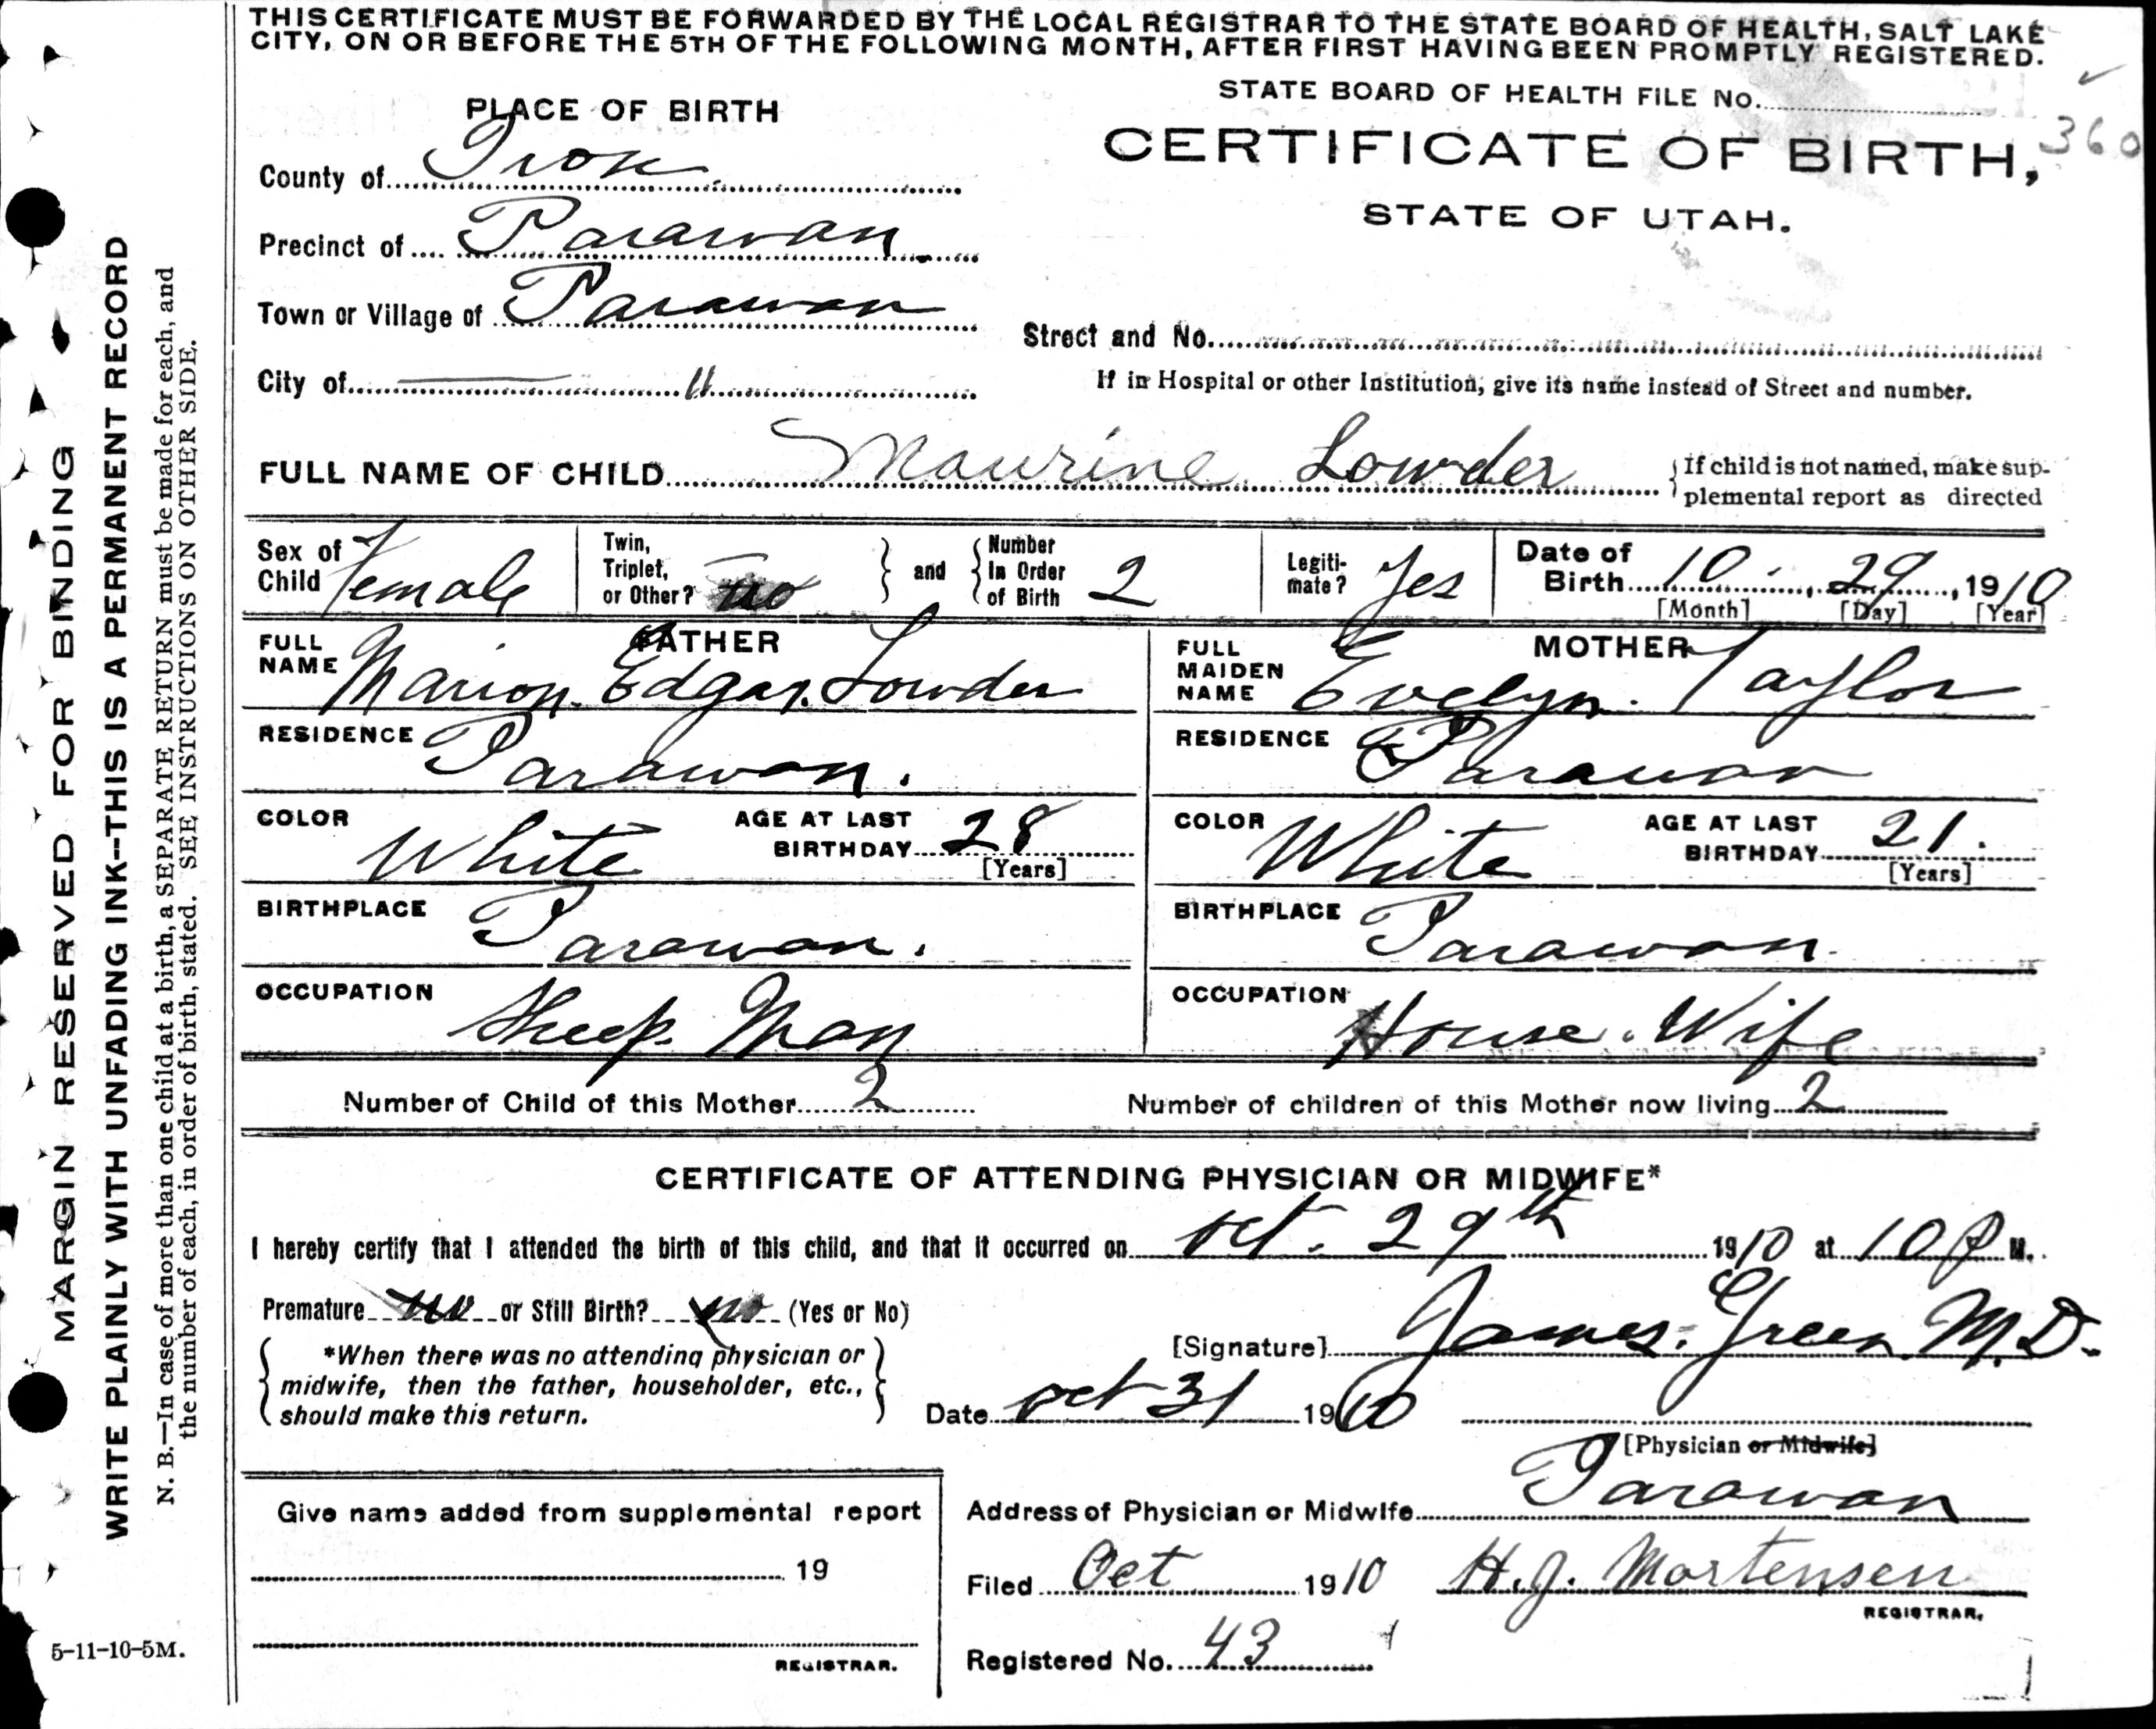 THIS CERTIFICATE MUST BE FORWARDED BY THE LOCAL REGISTRAR TO THE STATE BOARD OF HEALTH, SALT LAKE
CITY, ON OR BEFORE THE 5TH OF THE FOLLOWING MONTH, AFTER FIRST HAVING BEEN PROMPTLY REGISTERED.
STATE BOARD OF HEALTH FILE No.
360
PLACE OF BIRTH
CERTIFICATE OF BIRTH,
STATE OF UTAH.
County of Iron
Precinct of Parawan
Town or Village of Parawan
Street and No.
City of — "
If in Hospital or other Institution, give its name instead of Street and number.
FULL NAME OF CHILD Maurine Lowder
{If child is not named, make sup-
plemental report as directed
Sex of Child Female
Twin, Triplet, or Other? no } and { Number In Order of Birth 2
Legiti-mate? Yes
Date of Birth 10 . 29 , 1910
[Month] [Day] [Year]
FATHER
FULL NAME Marion Edgar Lowder
MOTHER
FULL MAIDEN NAME Evelyn Taylor
RESIDENCE Parawan.
RESIDENCE Parawan
COLOR White AGE AT LAST BIRTHDAY 28 [Years]
COLOR White AGE AT LAST BIRTHDAY 21. [Years]
BIRTHPLACE Parowan.
BIRTHPLACE Parawan.
OCCUPATION Sheep Man
OCCUPATION House Wife
Number of Child of this Mother 2
Number of children of this Mother now living 2
CERTIFICATE OF ATTENDING PHYSICIAN OR MIDWIFE*
I hereby certify that I attended the birth of this child, and that it occurred on oct. 29th 1910 at 10 P M.
Premature no or Still Birth? no (Yes or No)
[Signature] James Green M.D.
{ *When there was no attending physician or
midwife, then the father, householder, etc.,
should make this return. }
Date oct 31 1910
[Physician or Midwife]
Address of Physician or Midwife Parowan
Give name added from supplemental report
19
REGISTRAR.
Filed Oct 1910 H.J. Mortensen
REGISTRAR.
Registered No. 43
MARGIN RESERVED FOR BINDING
WRITE PLAINLY WITH UNFADING INK--THIS IS A PERMANENT RECORD
N. B.—In case of more than one child at a birth, a SEPARATE RETURN must be made for each, and
the number of each, in order of birth, stated. SEE INSTRUCTIONS ON OTHER SIDE.
5-11-10-5M.